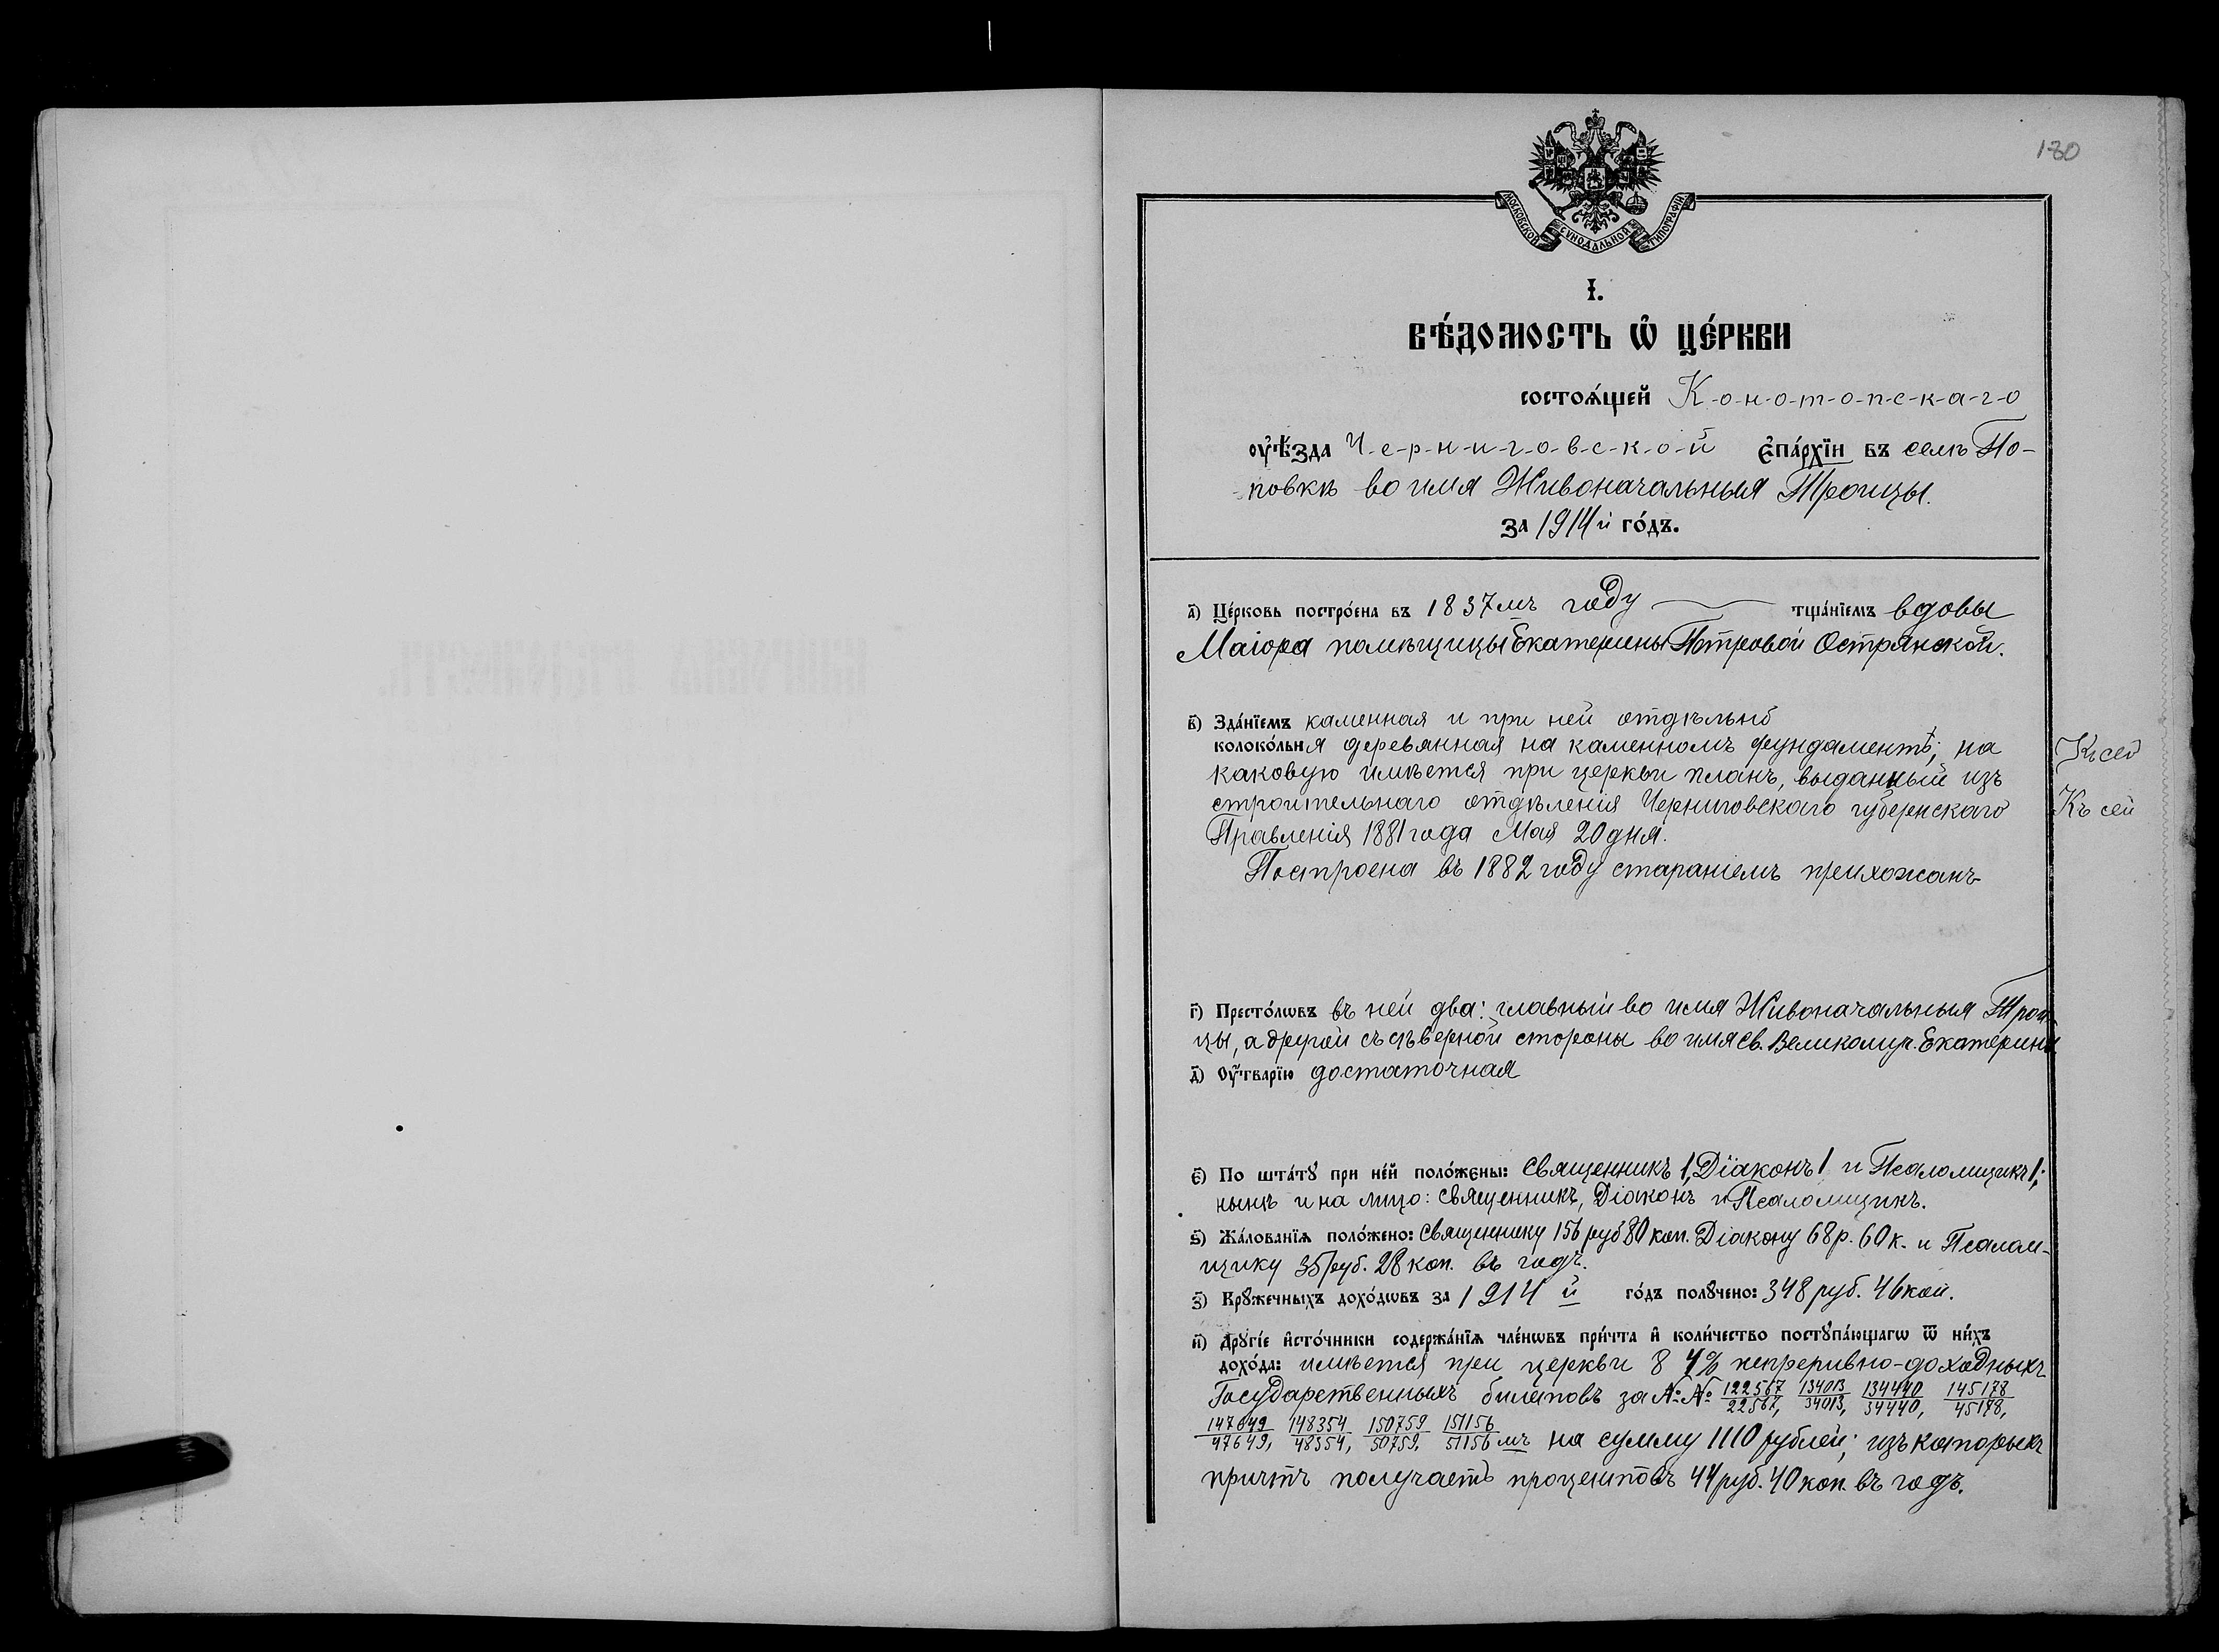 180
МОСКОВСКОЙ СѴНОДАЛЬНОЙ ТИПОГРАФІИ
I.
ВѢ́ДОМОСТЬ Ѡ҆ ЦЕ́РКВИ
состоѧ́щей К-о-н-о-т-о-п-с-к-а-г-о
оу҆ѣ́зда Ч-е-р-н-и-г-о-в-с-к-о-й є҆па́рхїи въ селѣ По-
повкѣ во имя Живоначальныя Троицы.
за 1914й го́дъ.
а҃) Це́рковь постро́ена въ 1837мъ году тща́нїемъ вдовы
Маіора помѣщицы Екатерины Петровой Острянской.
в҃) Зда́нїемъ каменная и при ней отдѣльно
колоко́льня деревянная на каменномъ фундаментѣ; на
каковую имѣется при церкви планъ, выданный изъ
строительнаго отдѣленія Черниговскаго губернскаго
Правленія 1881 года Мая 20 дня.
Построена въ 1882 году стараніемъ прихожанъ
Къ сей
Къ сей
г҃) Престо́лѡвъ въ ней два: главный во имя Живоначальныя Трои-
цы, а другой съ сѣверной стороны во имя св. Великомуч. Екатерины
д҃) Оу҆́тварїю достаточная
є҃) По шта́тꙋ при не́й поло́жены: Священникъ 1, Діаконъ 1 и Псаломщикъ 1;
нынѣ и на лицо: священникъ, Діаконъ и Псаломщикъ.
ѕ҃) Жа́лованїѧ поло́жено: Священнику 156 руб 80 коп. Діакону 68 р. 60 к. и Псалом-
щику 35 руб. 28 коп. въ годъ.
з҃) Крꙋжечныхъ дохо́дѡвъ за 1914 й го́дъ полꙋчено: 348 руб. 46 коп.
и҃) Дрꙋгі́е и҆сто́чники содержа́нїѧ чле́нѡвъ при́чта и҆ коли́чество постꙋпа́ющагѡ ѿ ни́хъ
дохо́да: имѣется при церкви 8 4% непрерывно-доходныхъ
Государственныхъ билетовъ за №№ 122567/22567, 134013/34013, 134440/34440, 145178/45178,
147649/47649, 148354/48354, 150759/50759, 151156/51156 мъ на сумму 1110 рублей; изъ которыхъ
причтъ получаетъ процентовъ 44 руб. 40 коп. въ годъ.